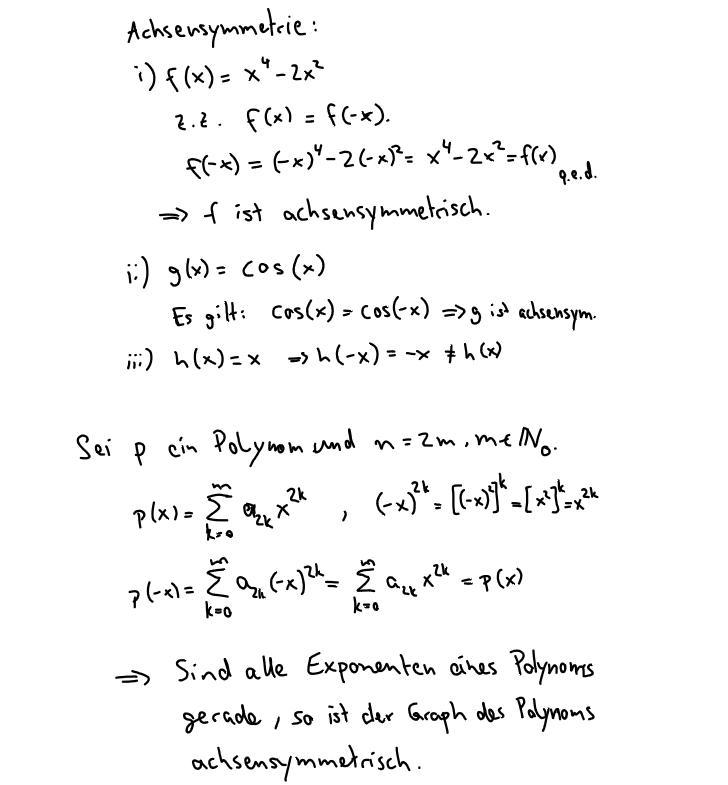 Achsensymmetrie:
i) f(x) = x⁴ - 2x²
z.z. f(x) = f(-x).
f(-x) = (-x)⁴ - 2(-x)² = x⁴ - 2x² = f(x) q.e.d.
=> f ist achsensymmetrisch.
ii) g(x) = cos(x)
Es gilt: cos(x) = cos(-x) => g ist achsensym.
iii) h(x) = x => h(-x) = -x ≠ h(x)
Sei p ein Polynom und n = 2m, m ∈ ℕ₀.
p(x) = ∑_{k=0}^{m} a_{2k} x^{2k} , (-x)^{2k} = [(-x)²]^k = [x²]^k = x^{2k}
p(-x) = ∑_{k=0}^{m} a_{2k} (-x)^{2k} = ∑_{k=0}^{m} a_{2k} x^{2k} = p(x)
=> Sind alle Exponenten eines Polynoms
gerade, so ist der Graph des Polynoms
achsensymmetrisch.